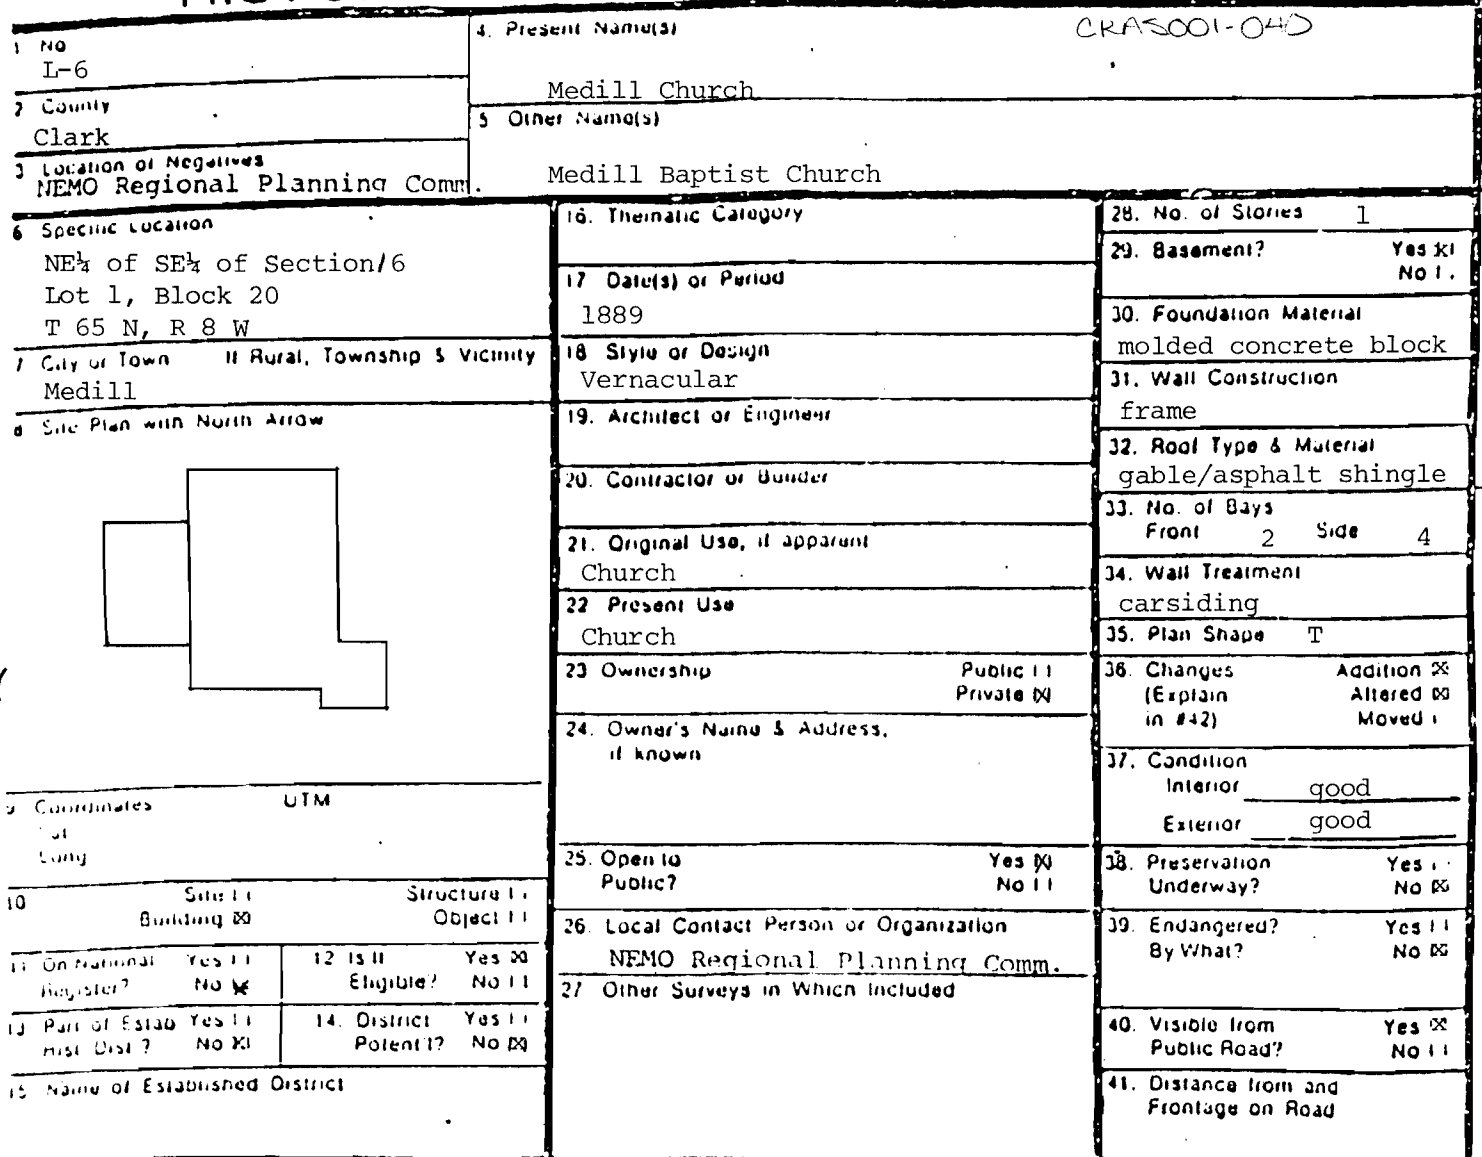 CRAS001-040
1 No
L-6
2 County
Clark
3 Location of Negatives
NEMO Regional Planning Comm.
4. Present Name(s)
Medill Church
5 Other Name(s)
Medill Baptist Church
6 Specific Location
NE¼ of SE¼ of Section/6
Lot 1, Block 20
T 65 N, R 8 W
7 City or Town If Rural, Township & Vicinity
Medill
8 Site Plan with North Arrow
9 Coordinates UTM
Lat
Long
10 Site [ ] Structure [ ]
Building [X] Object [ ]
11 On National Yes [ ]
Register? No [X]
12 Is It Yes [X]
Eligible? No [ ]
13 Part of Estab Yes [ ]
Hist Dist? No [X]
14. District Yes [ ]
Potent'l? No [X]
15 Name of Established District
16. Thematic Category
17 Date(s) or Period
1889
18 Style or Design
Vernacular
19. Architect or Engineer
20. Contractor or Builder
21. Original Use, if apparent
Church
22 Present Use
Church
23 Ownership Public [ ]
Private [X]
24. Owner's Name & Address,
if known
25. Open to Yes [X]
Public? No [ ]
26. Local Contact Person or Organization
NEMO Regional Planning Comm.
27 Other Surveys in Which Included
28. No. of Stories 1
29. Basement? Yes [X]
No [ ]
30. Foundation Material
molded concrete block
31. Wall Construction
frame
32. Roof Type & Material
gable/asphalt shingle
33. No. of Bays
Front 2 Side 4
34. Wall Treatment
carsiding
35. Plan Shape T
36. Changes Addition [X]
(Explain Altered [X]
in #42) Moved [ ]
37. Condition
Interior good
Exterior good
38. Preservation Yes [ ]
Underway? No [X]
39. Endangered? Yes [ ]
By What? No [X]
40. Visible from Yes [X]
Public Road? No [ ]
41. Distance from and
Frontage on Road